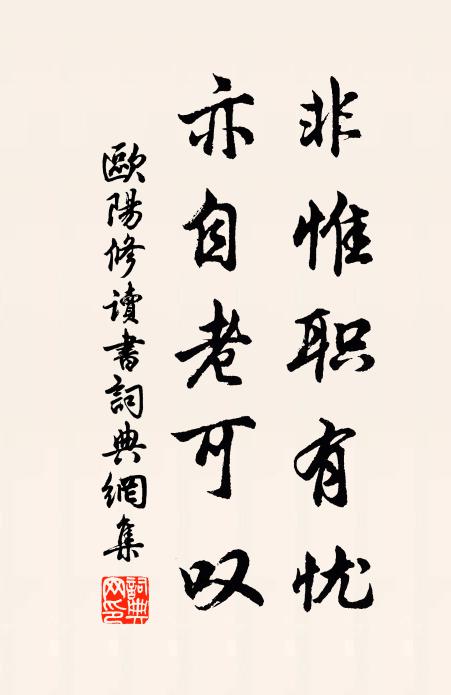 非惟职有忧
亦自老可叹
歐陽修讀書詞典網集
詞典网印